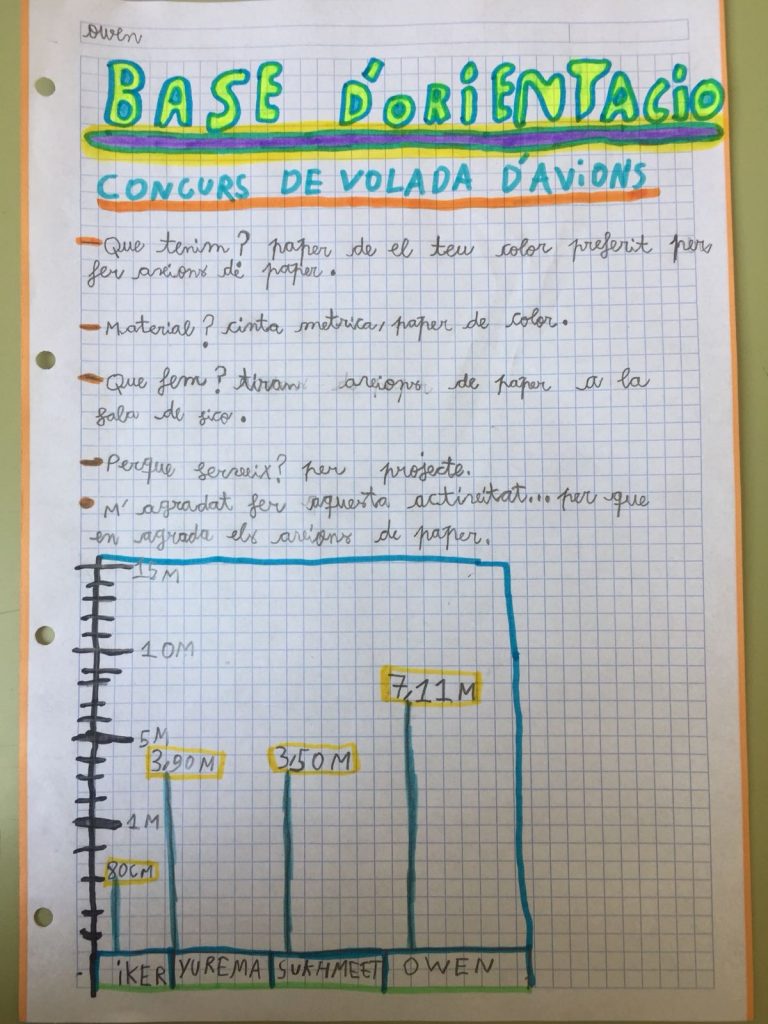 owen
BASE D'ORIENTACIO
CONCURS DE VOLADA D'AVIONS
- Que tenim? paper de el teu color preferit per
fer avions de paper.
- Material? cinta metrica, paper de color.
- Que fem? tiran avions de paper a la
sala de sico.
- Perque serveix? per projecte.
• M'agradat fer aquesta activitat... per que
en agrada els avions de paper.
15M
10M
7,11M
5M
3,90M
3,50M
1M
80CM
iKER YUREMA SUKHMEET OWEN